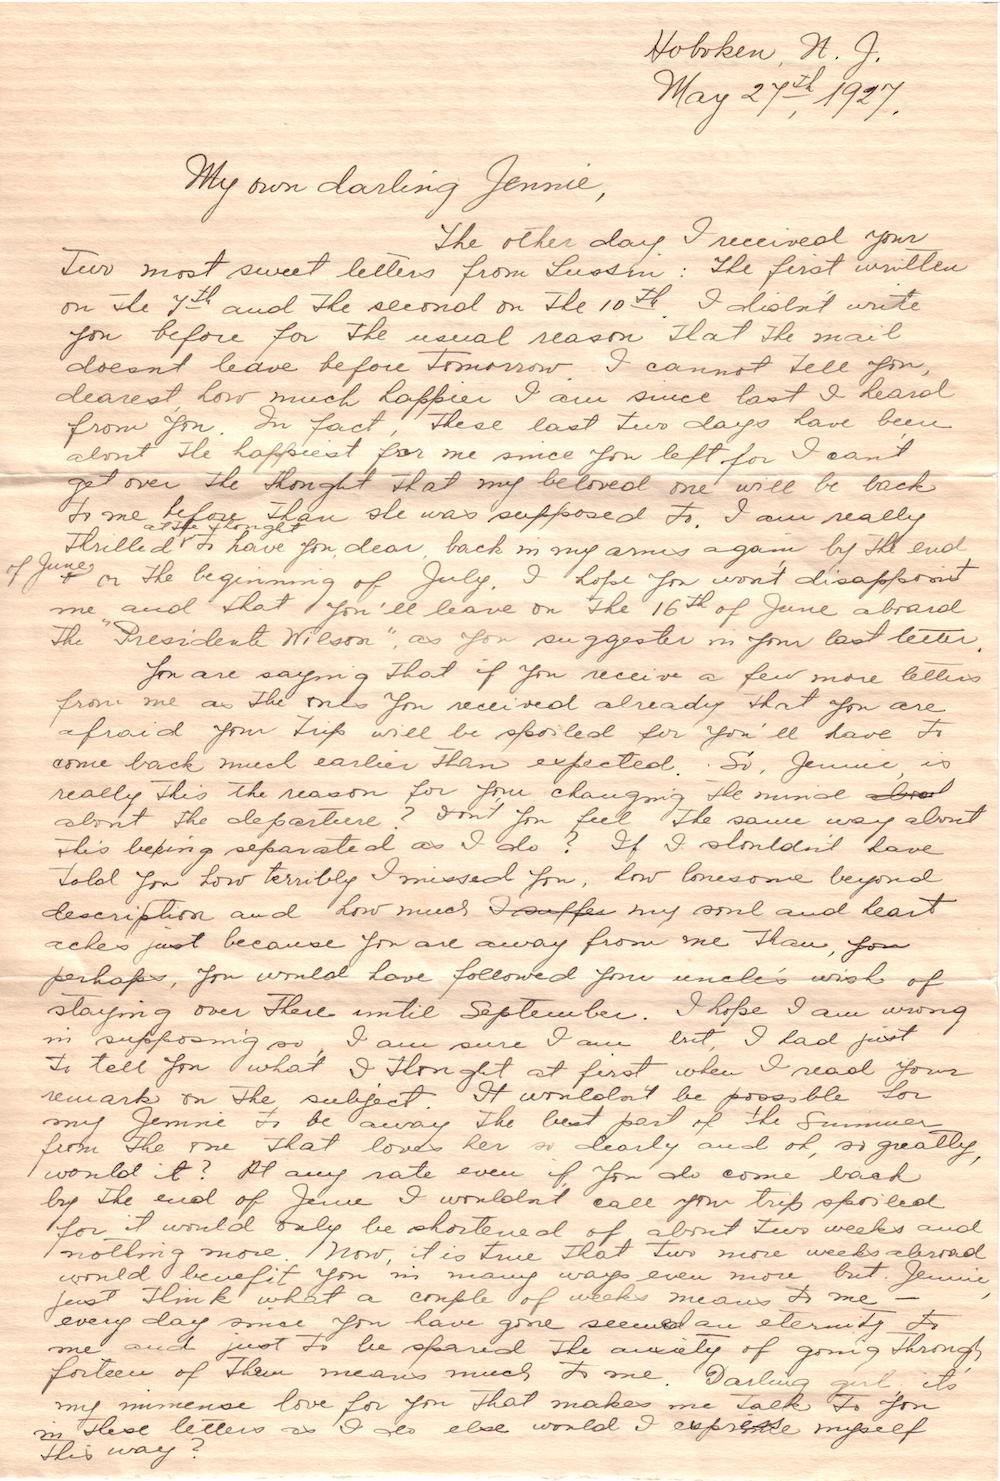 Hoboken, N. J.
May 27th, 1927.
My own darling Jennie,
The other day I received your
two most sweet letters from Lussin: The first written
on the 7th and the second on the 10th. I didn't write
you before for the usual reason that the mail
doesn't leave before tomorrow. I cannot tell you,
dearest how much happier I am since last I heard
from you. In fact, these last two days have been
about the happiest for me since you left for I can't
get over the thought that my beloved one will be back
to me before than she was supposed to. I am really
at the thought
thrilled to have you, dear, back in my arms again by the end
of June or the beginning of July. I hope you won't disappoint
me and that you'll leave on the 16th of June aboard
the "Presidente Wilson", as you suggester in your last letter.
You are saying that if you receive a few more letters
from me as the ones you received already that you are
afraid your trip will be spoiled for you'll have to
come back much earlier than expected. So, Jennie, is
really this the reason for your changing the mind about
about the departure? Don't you feel the same way about
this being separated as I do? If I shouldn't have
told you how terribly I missed you, how lonesome beyond
description and how much I suffer my soul and heart
aches just because you are away from me than, you
perhaps, you would have followed your uncle's wish of
staying over there until September. I hope I am wrong
in supposing so, I am sure I am but, I had just
to tell you what I thought at first when I read your
remark on the subject. It wouldn't be possible for
my Jennie to be away the best part of the Summer
from the one that loves her so dearly and oh, so greatly,
would it? At any rate even if you do come back
by the end of June I wouldn't call your trip spoiled
for it would only be shortened of about two weeks and
nothing more. Now, it is true that two more weeks abroad
would benefit you in many ways even more but, Jennie,
just think what a couple of weeks means to me —
every day since you have gone seemed an eternity to
me and just to be spared the anxiety of going through
forteen of them means much to me. Darling girl, it's
my immense love for you that makes me talk to you
in these letters as I do else would I express myself
this way?